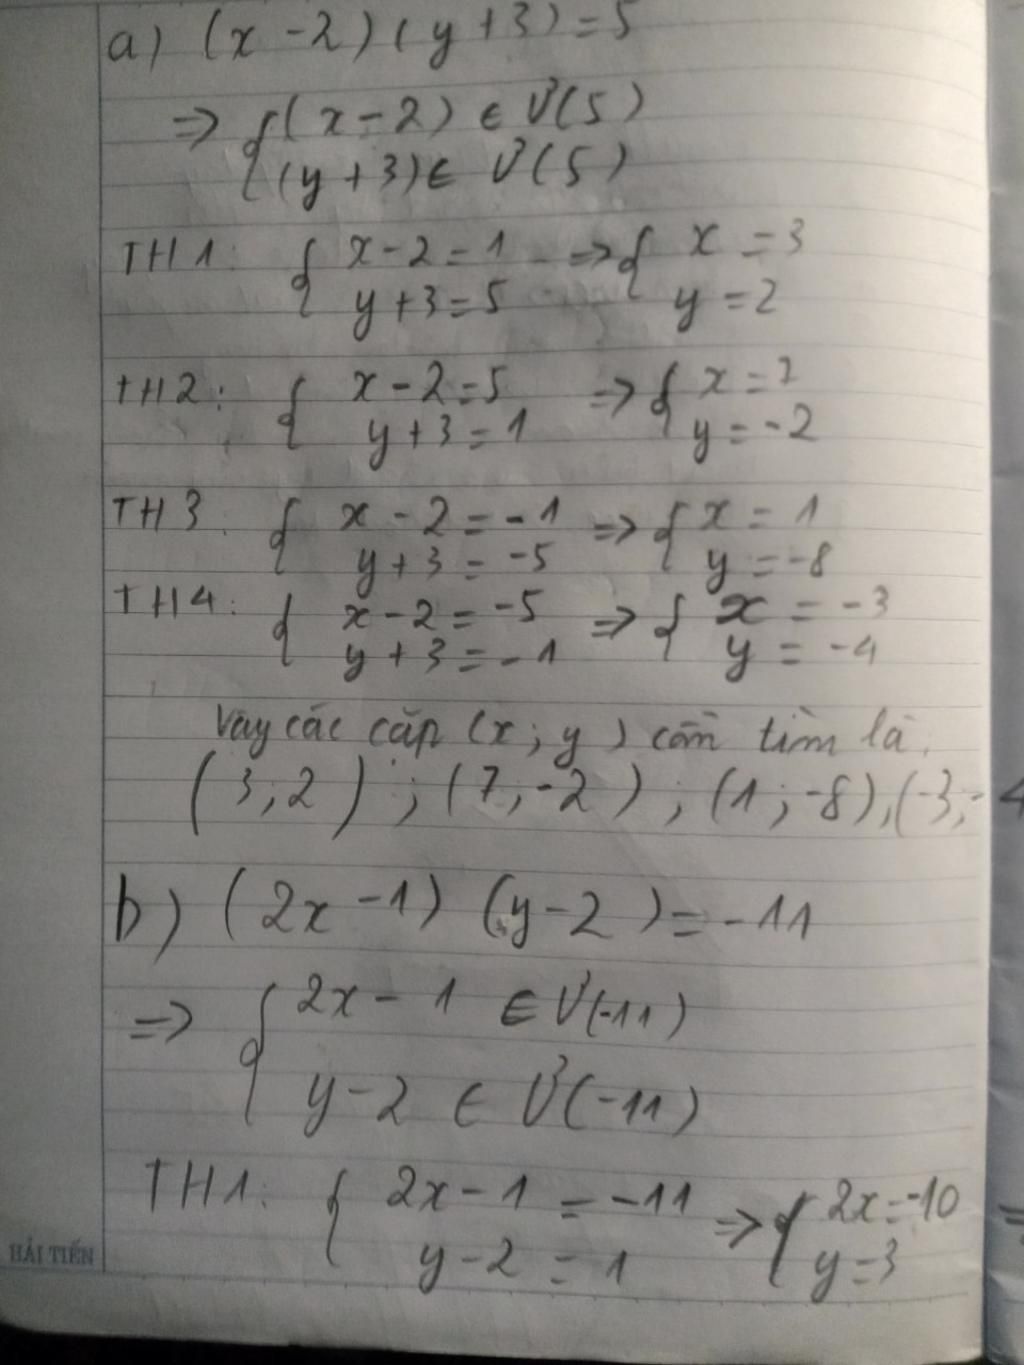 a) (x - 2) (y + 3) = 5
=> { (x - 2) ∈ Ư(5)
(y + 3) ∈ Ư(5)
TH1: { x - 2 = 1 => { x = 3
y + 3 = 5 y = 2
TH2: { x - 2 = 5 => { x = 7
y + 3 = 1 y = -2
TH3: { x - 2 = -1 => { x = 1
y + 3 = -5 y = -8
TH4: { x - 2 = -5 => { x = -3
y + 3 = -1 y = -4
Vậy các cặp (x; y) cần tìm là:
(3; 2) ; (7; -2) ; (1; -8), (-3; -4
b) (2x - 1) (y - 2) = -11
=> { 2x - 1 ∈ Ư(-11)
y - 2 ∈ Ư(-11)
TH1: { 2x - 1 = -11 => { 2x = -10
y - 2 = 1 y = 3
HẢI TIẾN